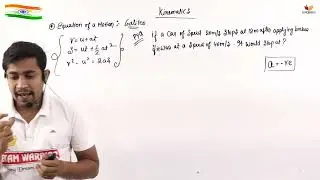 Kinematics
Equation of a Motion :- Galileo
v = u + at
s = ut + 1/2 at²
v² - u² = 2as
PYQ
If a Car of Speed 20m/s Stops at 10m after applying brakes
If Car at a Speed of 40m/s. It would Stop at?
a = -ve
EXAM WARRIOR